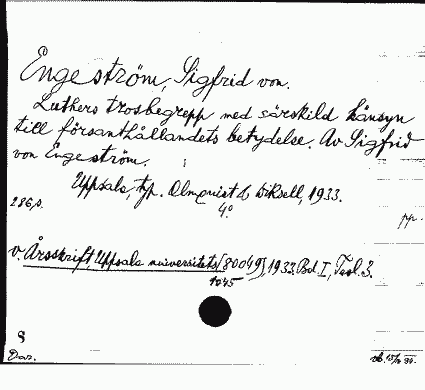 Engeström, Sigfrid von.
Luthers trosbegrepp med särskild hänsyn
till försanthållandets betydelse. Av Sigfrid
von Engeström.
Uppsala, typ. Almquist & Wiksell, 1933.
286 p. 4º
pp.
v. Årsskrift, Uppsala universitets [80049], 1933. Bd. I, Teol. 3.
1045
8
Dar.